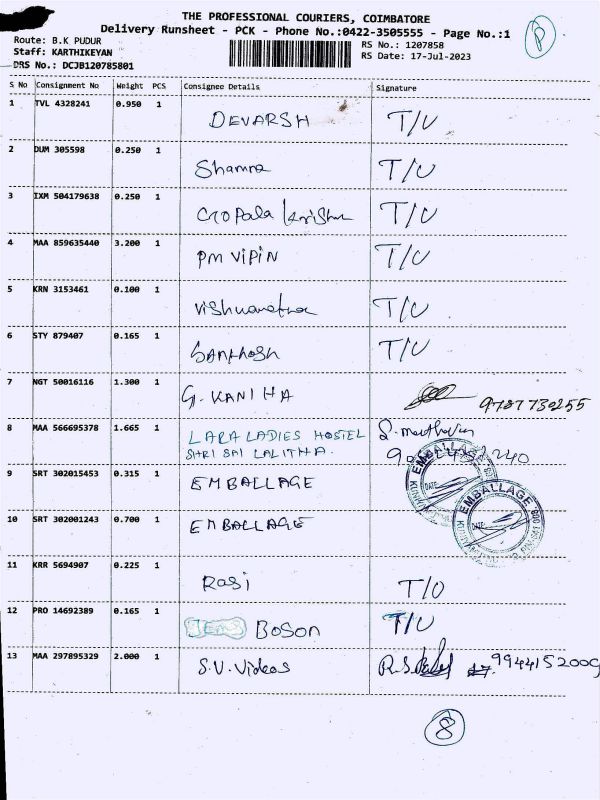 THE PROFESSIONAL COURIERS, COIMBATORE
Delivery Runsheet - PCK - Phone No.:0422-3505555 - Page No.:1
P
Route: B.K PUDUR
RS No.: 1207858
Staff: KARTHIKEYAN
RS Date: 17-Jul-2023
DRS No.: DCJB120785801
S No Consignment No Weight PCS Consignee Details Signature
1 TVL 4328241 0.950 1 DEVARSH T/U
2 DUM 305598 0.250 1 Shamna T/U
3 IXM 504179638 0.250 1 Gopala krishn T/U
4 MAA 859635440 3.200 1 PM VIPIN T/U
5 KRN 3153461 0.100 1 T/U
6 STY 879407 0.165 1 Santhosh T/U
7 NGT 50016116 1.300 1 G. KANIHA 9787730255
8 MAA 566695378 1.665 1 LARA LADIES HOSTEL
SHRI SAI LALITHA.
9 SRT 302015453 0.315 1 EMBALLAGE
EMBALLAGE
DATE
10 SRT 302001243 0.700 1 EMBALLAGE
EMBALLAGE
DATE
11 KRR 5694907 0.225 1 Rasi T/U
12 PRO 14692389 0.165 1 Boson T/U
13 MAA 297895329 2.000 1 S.V. Videos 9944152009
8